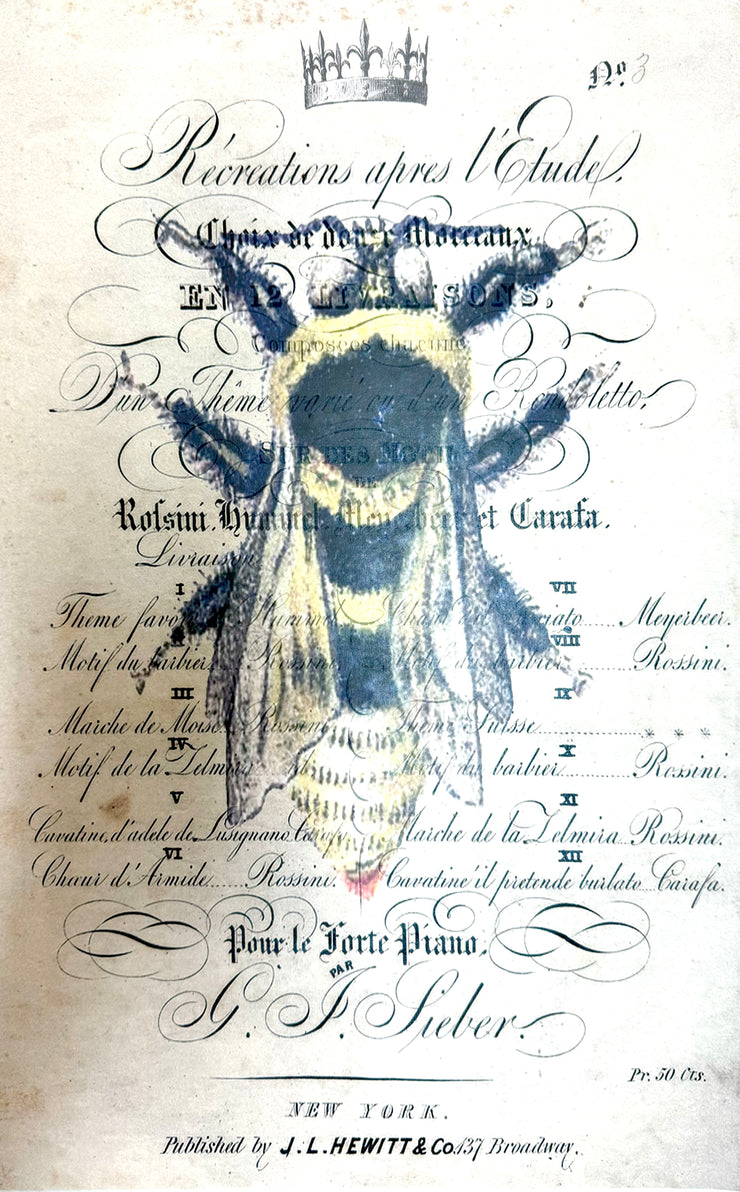 No. 3
Récreations apres l'Etude,
Choix de douze Morceaux
EN 12 LIVRAISONS,
Composées chacune
D'un Thême varié ou d'un Rondoletto,
SUR DES MOTIFS
DE
Rossini, Hummel, Meyerbeer et Carafa.
Livraison
I
Theme favori Hummel
II
Motif du barbier Rossini
III
Marche de Moise Rossini
IV
Motif de la Zelmira
V
Cavatine, d'adele de Lusignano Carafa
VI
Chœur d'Armide...... Rossini.
VII
Meyerbeer.
VIII
Motif du barbier Rossini.
IX
Theme Suisse * * *
X
Motif du barbier Rossini.
XI
Marche de la Zelmira Rossini.
XII
Cavatine il pretende burlato Carafa.
Pour le Forte Piano,
PAR
G. F. Sieber.
Pr. 50 Cts.
NEW YORK.
Published by J. L. HEWITT & Co. 137 Broadway.